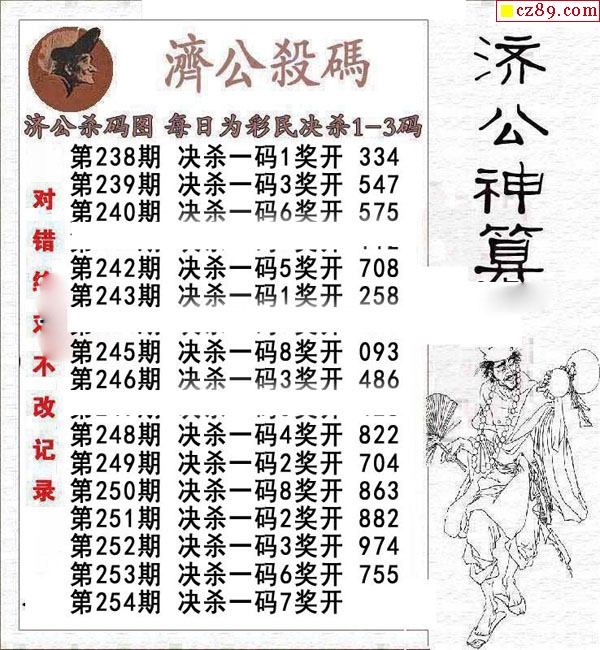 cz89.com
濟公殺碼
济公杀码图 每日为彩民决杀1-3码
第238期 决杀一码1奖开 334
第239期 决杀一码3奖开 547
第240期 决杀一码6奖开 575
第242期 决杀一码5奖开 708
第243期 决杀一码1奖开 258
第245期 决杀一码8奖开 093
第246期 决杀一码3奖开 486
第248期 决杀一码4奖开 822
第249期 决杀一码2奖开 704
第250期 决杀一码8奖开 863
第251期 决杀一码2奖开 882
第252期 决杀一码3奖开 974
第253期 决杀一码6奖开 755
第254期 决杀一码7奖开
对错
不改记录
济公神算